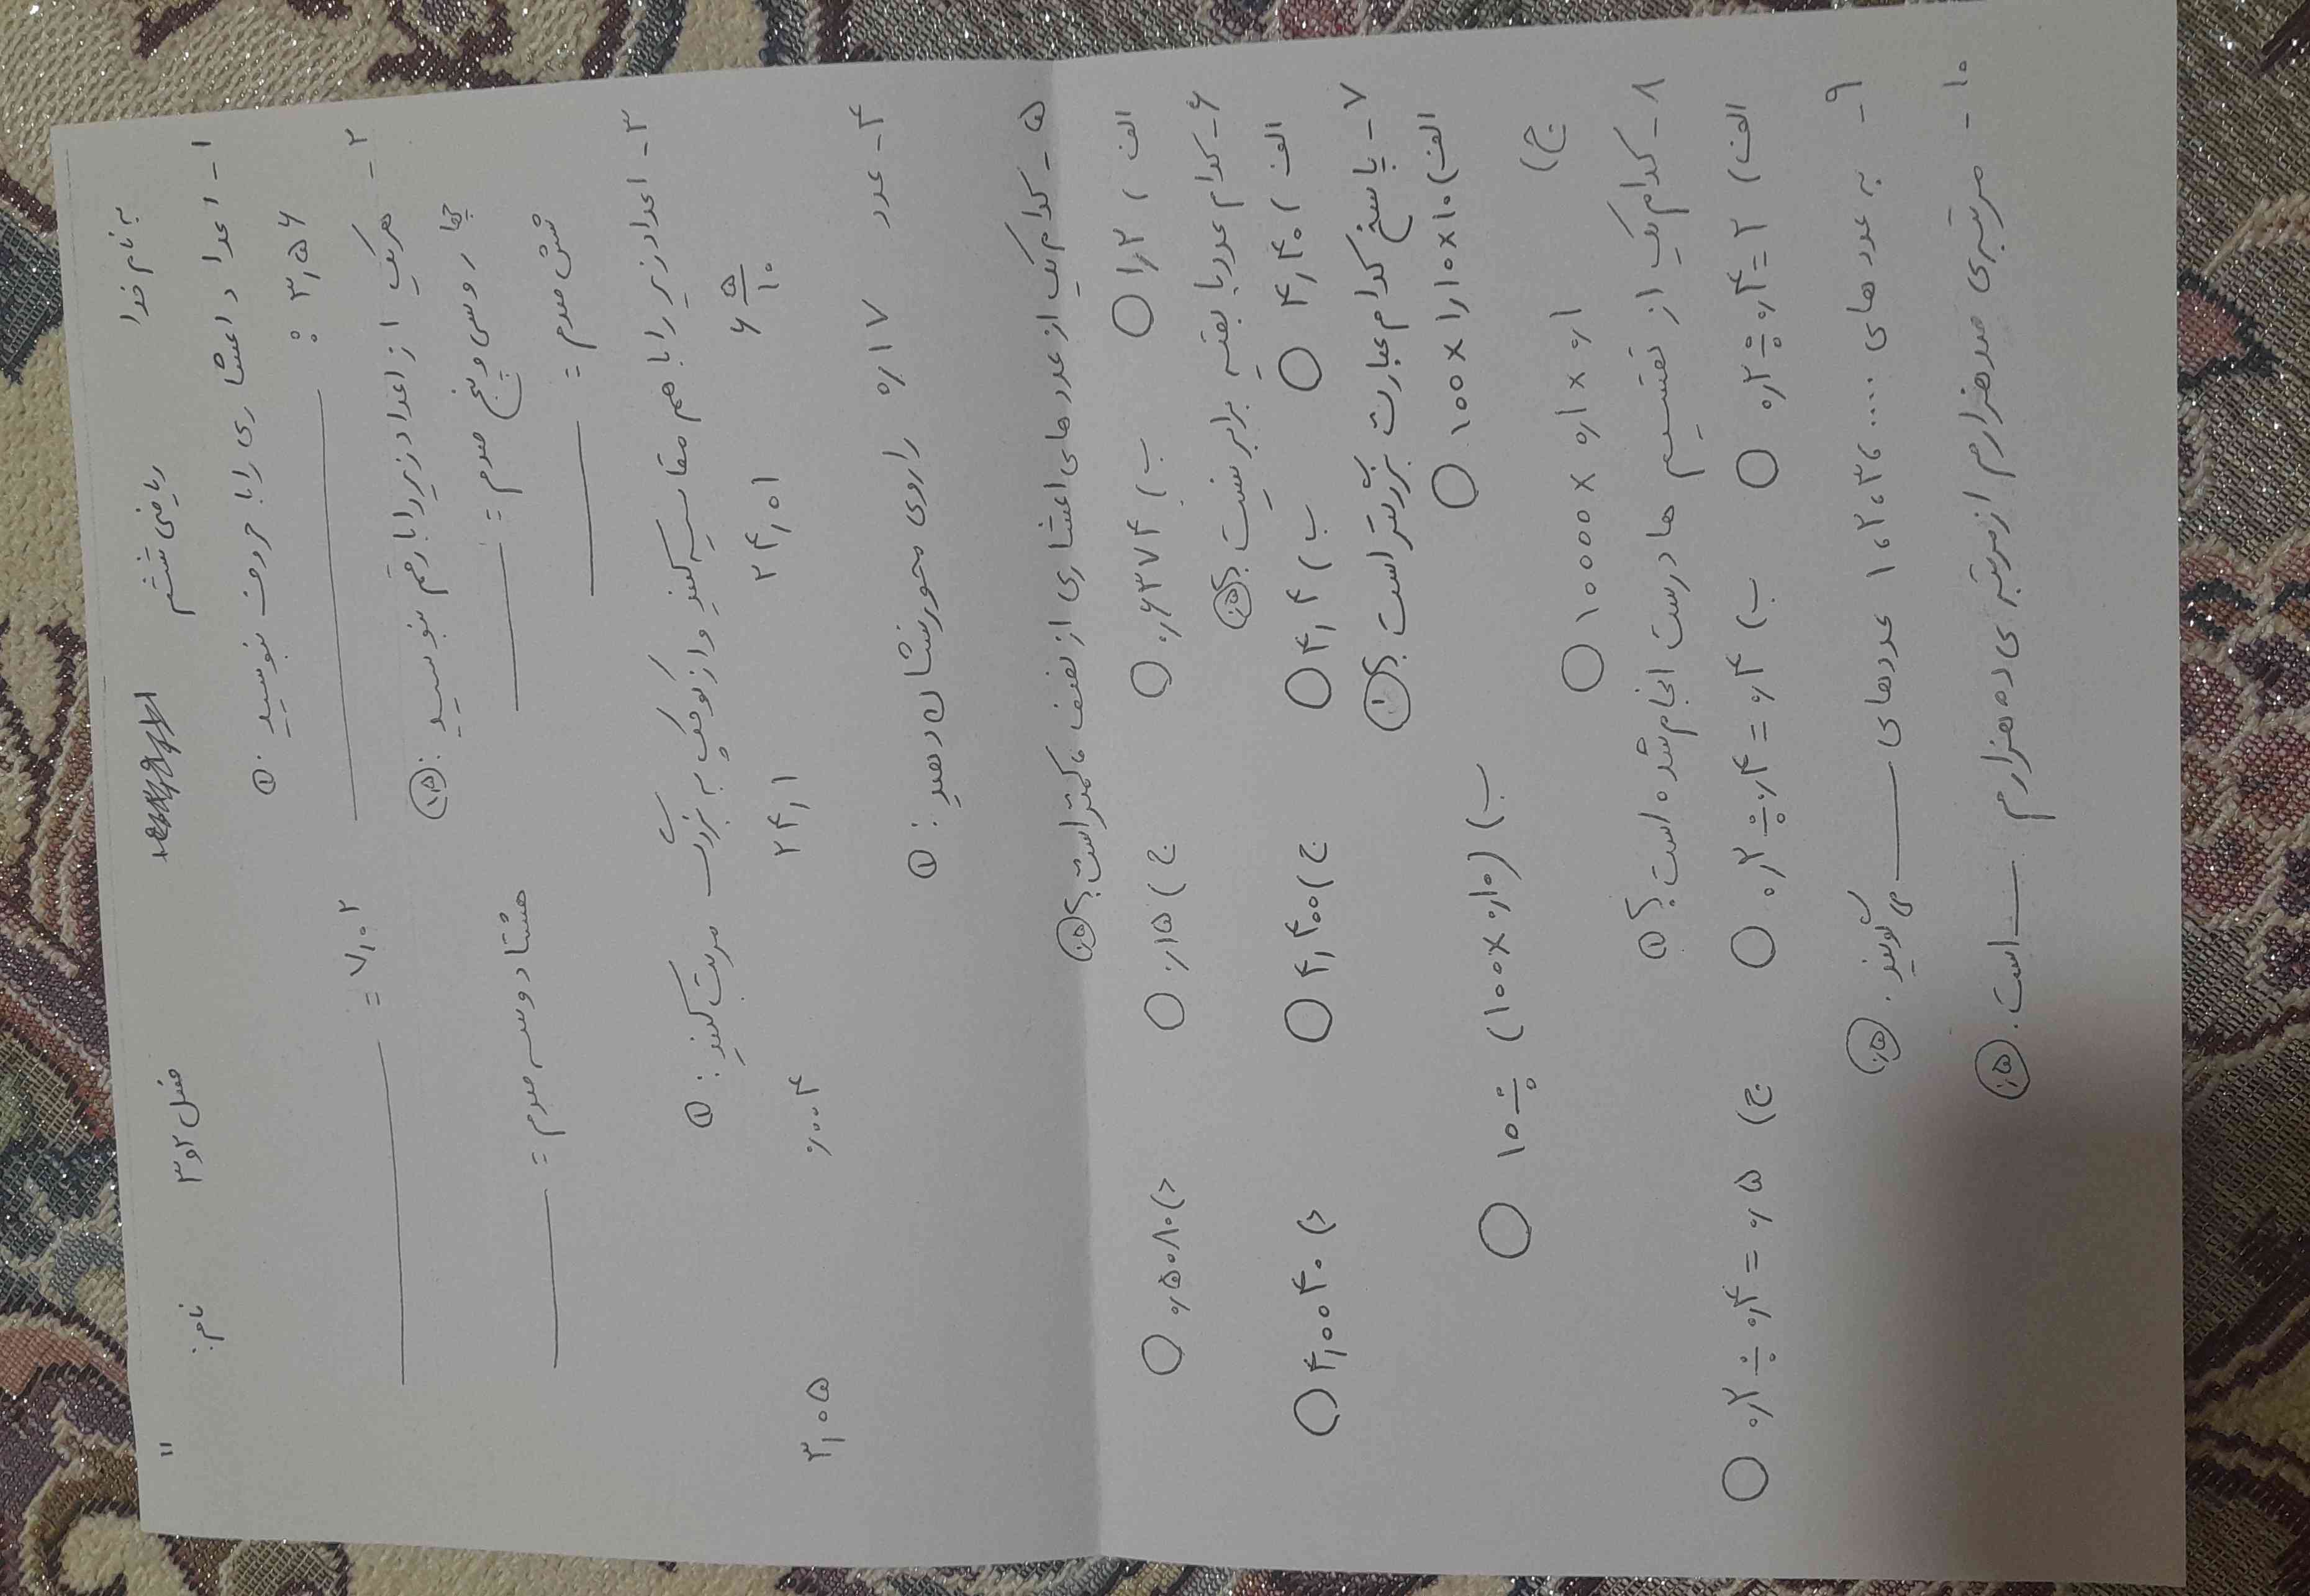 به نام خدا ریاضی ششم فصل ۲و۳ نام:
۱- اعداد اعشاری را با حروف بنویسید. ①
۳٫۵۶ : = ۷٫۰۲
۲- هریک از اعداد زیر را با رقم بنویسید: (۱٫۵)
چهار و سی و پنج صدم = هشتاد و سه صدم =
شش صدم =
۳- اعداد زیر را با هم مقایسه کنید و از کوچک به بزرگ مرتب کنید: ①
۶ ۵/۱۰ ۲۴٫۰۱ ۲۴٫۱ ۰٫۰۰۴ ۳٫۰۵
۴- عدد ۰٫۱۷ را روی محور نشان دهید: ①
۵- کدام یک از عددهای اعشاری از نصف، کمتر است؟ (۰٫۵)
الف) ۱٫۲ ب) ۰٫۶۳۷۴ ج) ۰٫۱۵ د) ۰٫۵۰۸۱۰
۶- کدام عدد با بقیه برابر نیست؟ (۰٫۵)
الف) ۴٫۴۰ ب) ۴٫۴ ج) ۴٫۴۰۰ د) ۴٫۰۰۴۰
۷- پاسخ کدام عبارت بزرگتر است؟ (۱)
الف) ۱۰۰ × ۱٫۱۰ × ۱۰ ب) (۱۰۰ × ۰٫۱۰) ÷ ۱۰
ج) ۱۰۰۰۰ × ۰٫۱ × ۰٫۱
۸- کدام یک از تقسیم ها درست انجام شده است؟ ①
الف) ۰٫۲ ÷ ۰٫۴ = ۲ ب) ۰٫۲ ÷ ۰٫۴ = ۰٫۴ ج) ۰٫۲ ÷ ۰٫۴ = ۰٫۵
۹- به عدد های ..... ،۳ ،۲ ،۱ عددهای می گویند. (۰٫۵)
۱۰- مرتبه ی صدهزارم از مرتبه ی ده هزارم است. (۰٫۵)